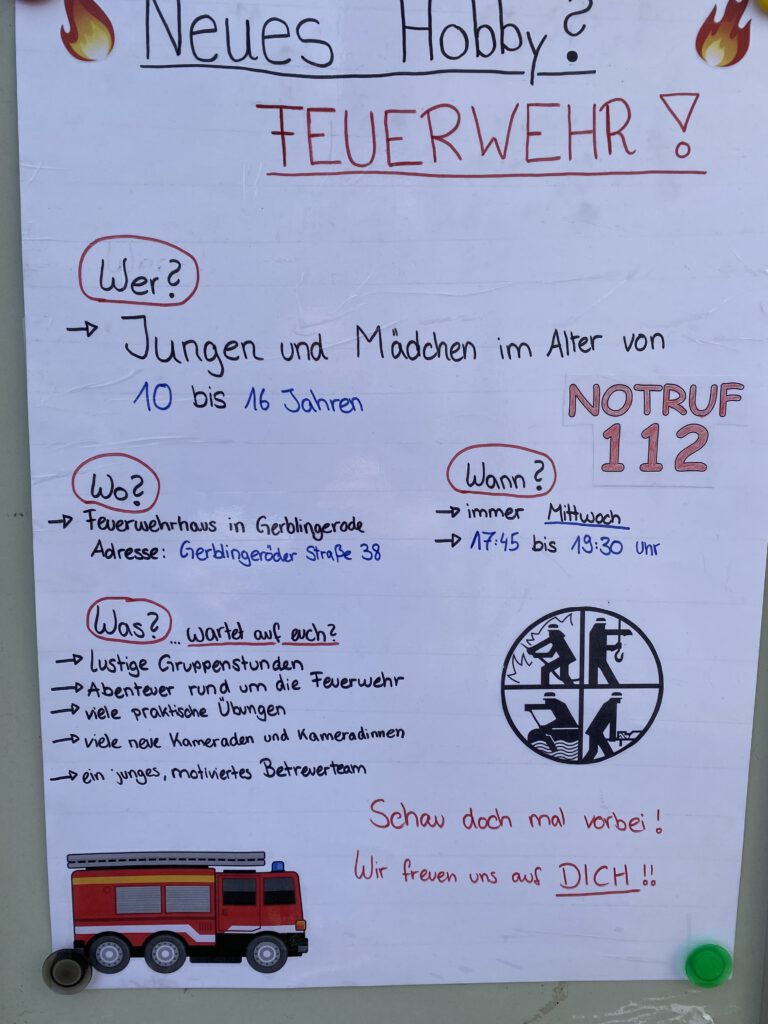 Neues Hobby?
FEUERWEHR!
Wer?
→ Jungen und Mädchen im Alter von
10 bis 16 Jahren
NOTRUF
112
Wo?
→ Feuerwehrhaus in Gerblingerode
Adresse: Gerblingeröder Straße 38
Wann?
→ immer Mittwoch
→ 17:45 bis 19:30 Uhr
Was? ... wartet auf euch?
→ lustige Gruppenstunden
→ Abenteuer rund um die Feuerwehr
→ viele praktische Übungen
→ viele neue Kameraden und Kameradinnen
→ ein junges, motiviertes Betreuerteam
Schau doch mal vorbei!
Wir freuen uns auf DICH!!